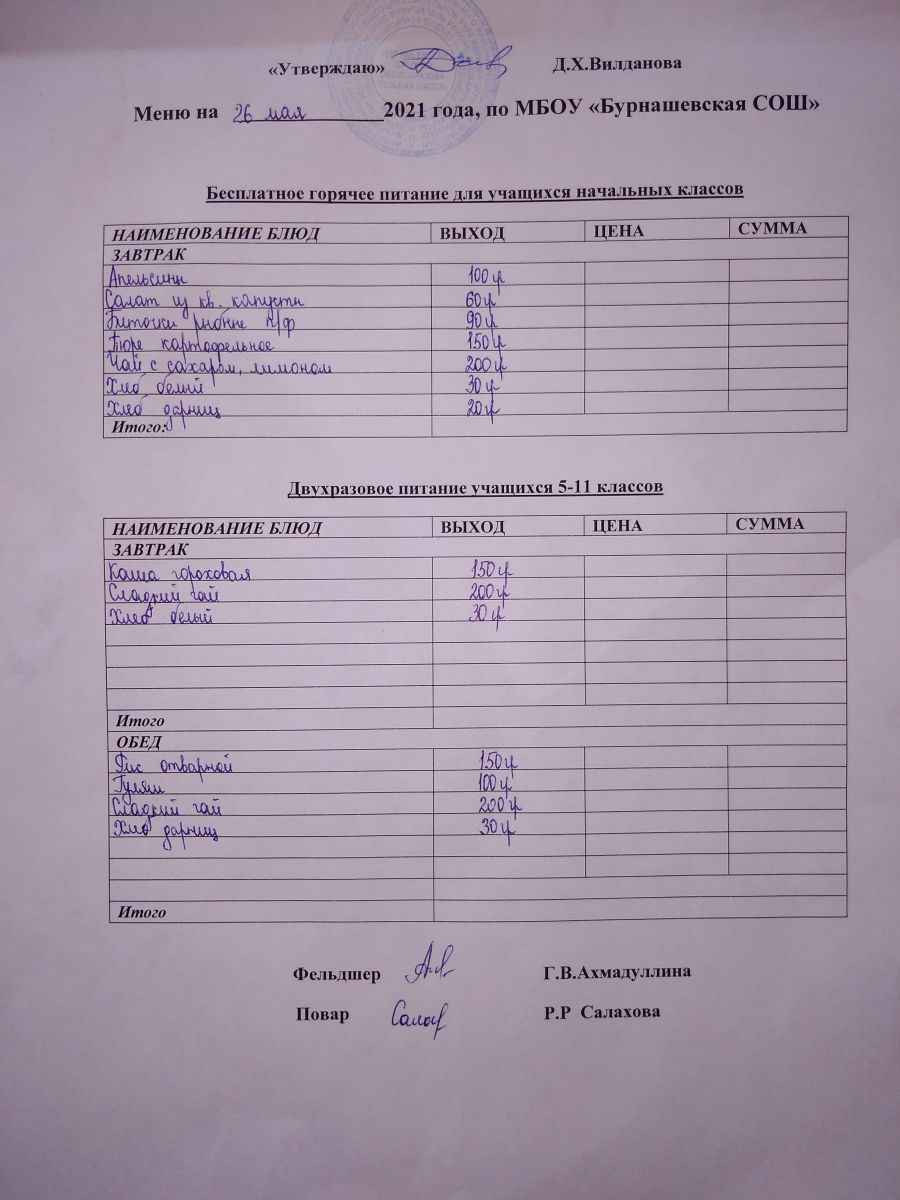 «Утверждаю» Д.Х.Вилданова
Меню на 26 мая 2021 года, по МБОУ «Бурнашевская СОШ»
Бесплатное горячее питание для учащихся начальных классов
НАИМЕНОВАНИЕ БЛЮД ВЫХОД ЦЕНА СУММА
ЗАВТРАК
Апельсины 100 гр
Салат из кв. капусты 60 гр
Биточки рыбные п/ф 90 гр
Пюре картофельное 150 гр
Чай с сахаром, лимоном 200 гр
Хлеб белый 30 гр
Хлеб дарниц 20 гр
Итого:
Двухразовое питание учащихся 5-11 классов
НАИМЕНОВАНИЕ БЛЮД ВЫХОД ЦЕНА СУММА
ЗАВТРАК
Каша гороховая 150 гр
Сладкий чай 200 гр
Хлеб белый 30 гр
Итого
ОБЕД
Рис отварной 150 гр
Гуляш 100 гр
Сладкий чай 200 гр
Хлеб дарниц 30 гр
Итого
Фельдшер Г.В.Ахмадуллина
Повар Р.Р Салахова